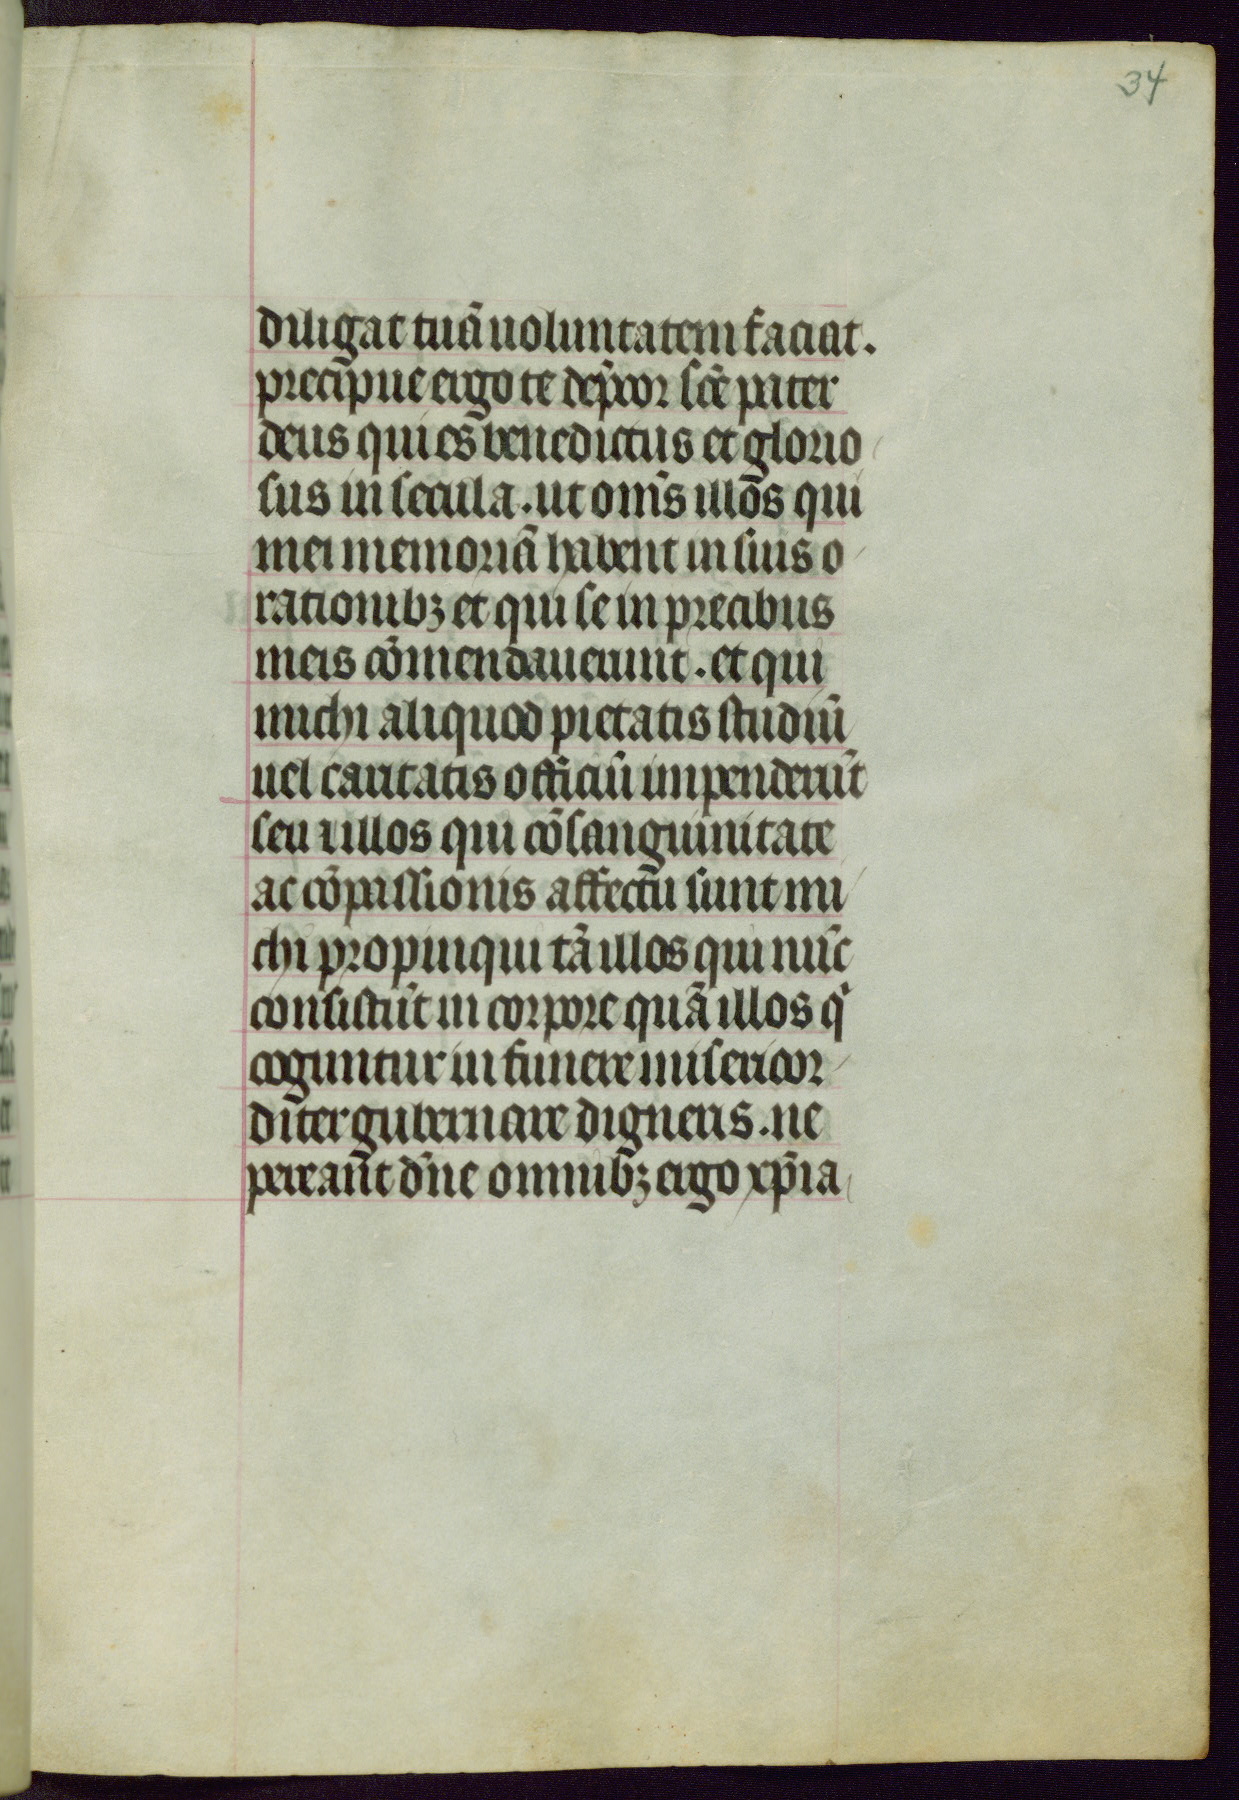 34
diligat tuā uoluntatem faciat.
precipue ergo te dep̄cor sc̄e pater
deus qui es benedictus et glorio
sus in secula. ut om̄s illos qui
mei memoriā habent in suis o
rationibꝫ et qui se in precibus
meis cōmendauerunt. et qui
michi aliquod pietatis studiū
uel caritatis officiū impenderūt
seu ⁊ illos qui cōsanguinitate
ac cōpassionis affectu sunt mi
chi propinqui tā illos qui nūc
consistūt in corpore quā illos qͥ
coguntur in funere misericor
dit̄er gubernare digneris. ne
pereant dn̄e omnibꝫ ergo xp̄ia